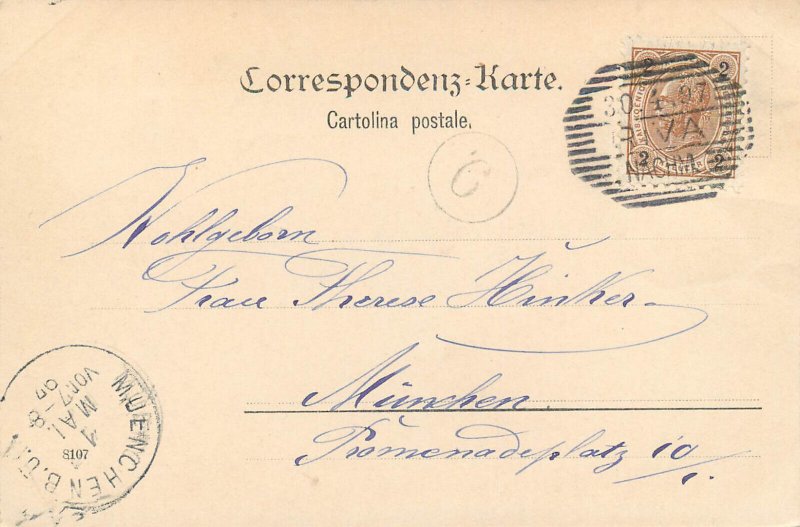 Correspondenz-Karte.
Cartolina postale.
2 2
30 4 97
RIVA
NACHM.
2 2
C
Wohlgeborn
Frau Therese Hinker
München
Promenadeplatz 10/1.
MUENCHEN B.
1 MAI
VOR 7-8
8107